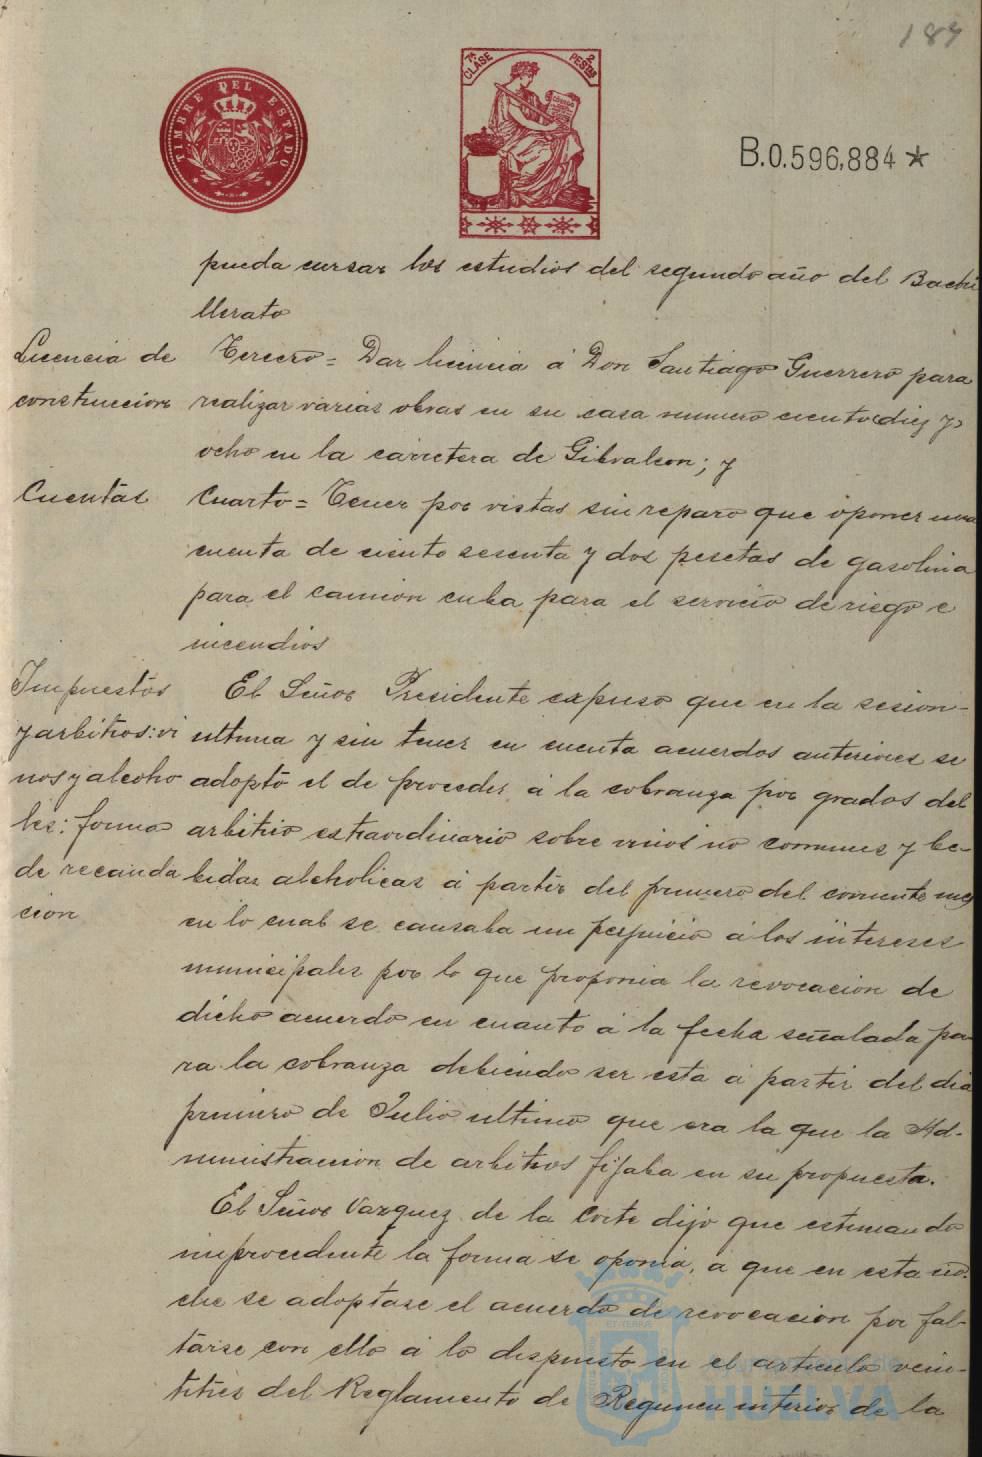 187
TIMBRE DEL ESTADO
7ª CLASE
2 PESETAS
B.0.596,884 *
pueda cursar los estudios del segundo año del Bachi
llerato
Licencia de
construccion
Tercero = Dar licencia á Don Santiago Guerrero para
realizar varias obras en su casa numero ciento diez y
ocho en la carretera de Gibraleon; y
Cuentas
Cuarto = Tener por vistas sin reparo que oponer una
cuenta de ciento sesenta y dos pesetas de gasolina
para el camion cuba para el servicio de riego e
incendios
Impuestos
y arbitros: vi
nos y alcoho
les: forma
de recauda
cion
El Señor Presidente expuso que en la sesion
ultima y sin tener en cuenta acuerdos anteriores se
adoptó el de proceder á la cobranza por grados del
arbitrio estraordinario sobre vinos no comunes y be-
bidas alcholicas á partir del primero del corriente mes
en lo cual se causaba un perjuicio á los intereses
municipales por lo que proponia la revocacion de
dicho acuerdo en cuanto á la fecha señalada pa-
ra la cobranza debiendo ser esta á partir del dia
primero de Julio ultimo que era la que la Ad-
ministracion de arbitros fijaba en su propuesta.
El Señor Vazquez de la Corte dijo que estimando
improcedente la forma se oponia, a que en esta no-
che se adoptase el acuerdo de revocacion por fal-
tarse con ello á lo dispuesto en el articulo vein-
titres del Reglamento de Regimen interior de la
Ayuntamiento de
HUELVA